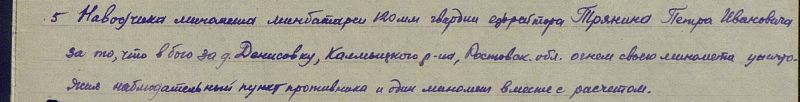 5 Наводчика миномета минбатареи 120 мм гвардии ефрейтора Трянина Петра Ивановича
за то, что в бою за д. Денисовку, Калмыцкого р-на, Ростовск. обл. огнем своего миномета уничто-
жил наблюдательный пункт противника и один миномет вместе с расчетом.